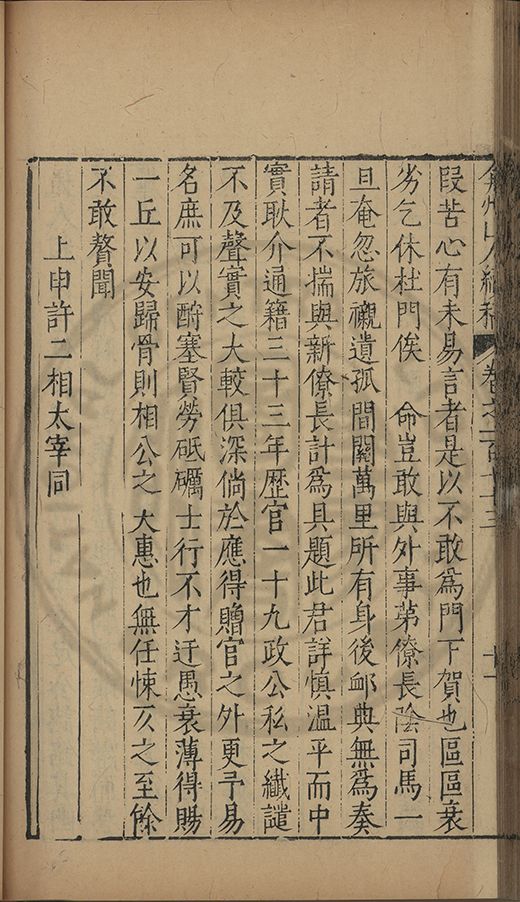 弇州山人續稿 卷之一百七十三 十一
段苦心有未易言者是以不敢爲門下賀也區區衰
劣乞休杜門俟 命豈敢與外事苐僚長陰司馬一
旦奄忽旅櫬遺孤間關萬里所有身後卹典無爲奏
請者不揣與新僚長計爲具題此君詳慎溫平而中
實耿介通籍三十三年歷官一十九政公私之纖譴
不及聲實之大較俱深倘於應得贈官之外更予易
名庶可以酧塞賢勞砥礪士行不才迂愚衰薄得賜
一丘以安歸骨則相公之 大惠也無任悚仄之至餘
不敢贅聞
上申許二相太宰同